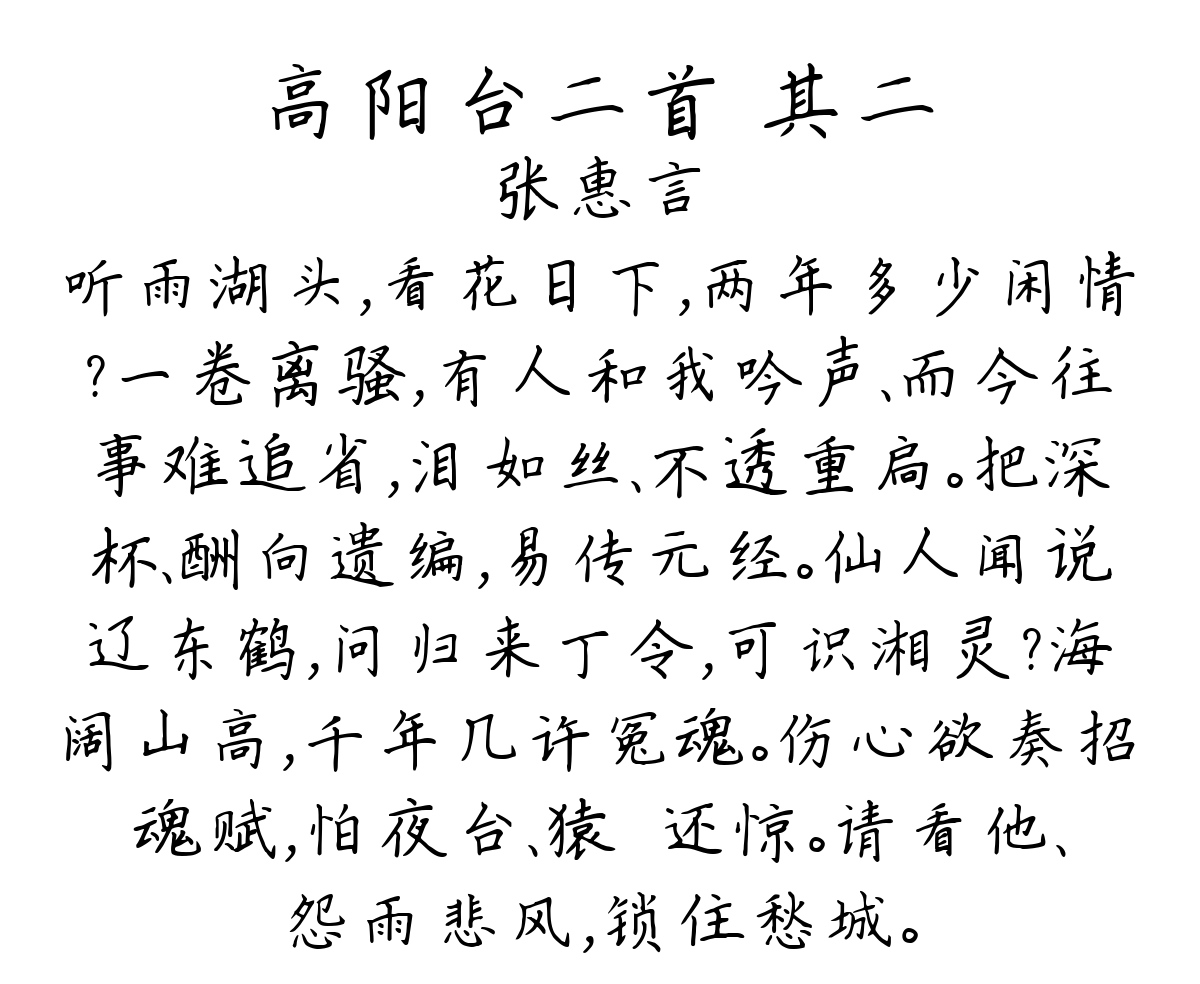 高阳台二首 其二
张惠言
听雨湖头,看花日下,两年多少闲情
?一卷离骚,有人和我吟声、而今往
事难追省,泪如丝、不透重扃。把深
杯、酬向遗编,易传元经。仙人闻说
辽东鹤,问归来丁令,可识湘灵?海
阔山高,千年几许冤魂。伤心欲奏招
魂赋,怕夜台、猿 还惊。请看他、
怨雨悲风,锁住愁城。